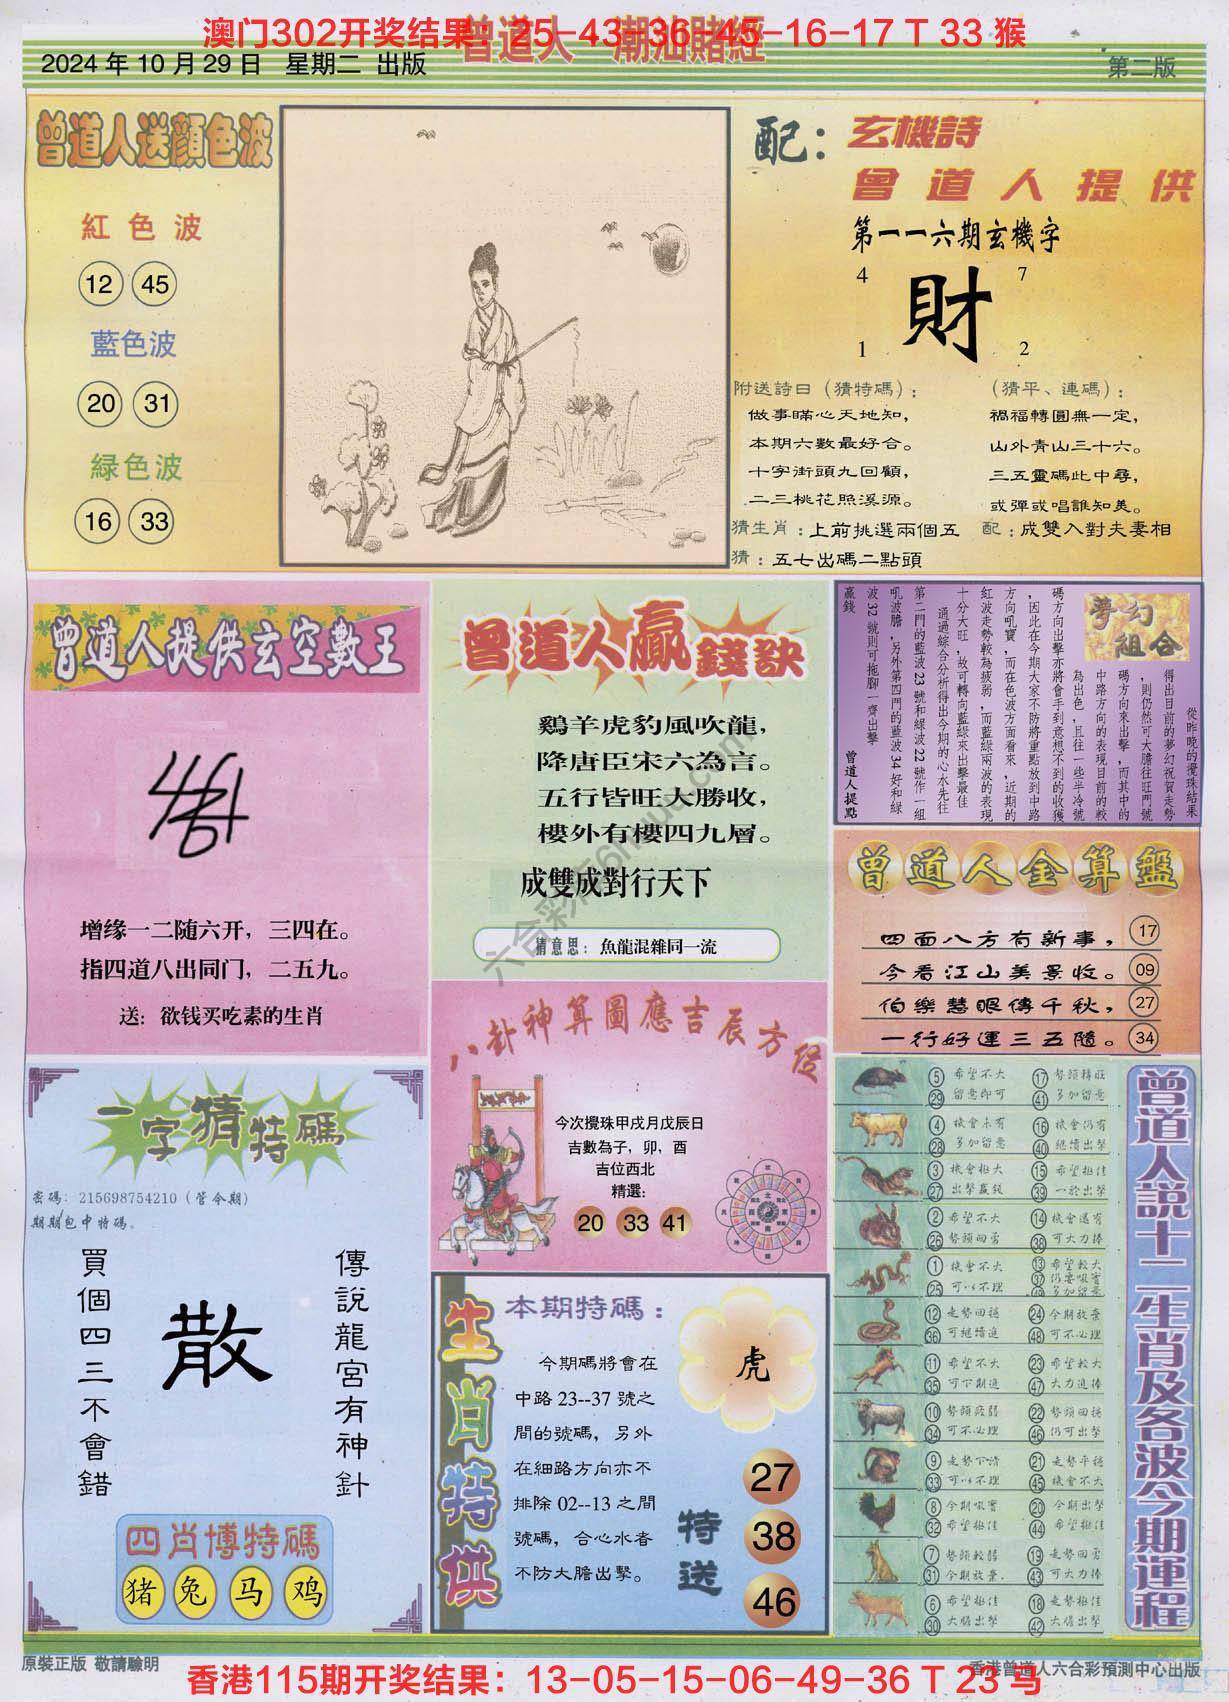 澳门302开奖结果：25-43-36-45-16-17 T 33 猴
曾道人 潮汕賭經
2024 年 10 月 29 日 星期二 出版
第二版
曾道人送顔色波
紅色波
12 45
藍色波
20 31
緑色波
16 33
配：玄機詩
曾道人提供
第一一六期玄機字
4 7
財
1 2
附送詩曰（猜特碼）：
做事瞞心天地知，
本期六數最好合。
十字街頭九回顧，
二三桃花照溪源。
（猜平、連碼）：
禍福轉圓無一定，
山外青山三十六。
三五靈碼此中尋，
或彈或唱誰知美。
猜生肖：上前挑選兩個五 配：成雙入對夫妻相
猜：五七出碼二點頭
曾道人提供玄空數王
增缘一二随六开，三四在。
指四道八出同门，二五九。
送：欲钱买吃素的生肖
曾道人贏錢訣
鷄羊虎豹風吹龍，
降唐臣宋六為言。
五行皆旺大勝收，
樓外有樓四九層。
成雙成對行天下
猜意思：魚龍混雜同一流
夢幻組合
從昨晚的攪珠結果
得出目前的夢幻祝賀走勢
，則仍然可大膽往旺門號
碼方向來出擊，而其中的
中路方向的表現目前的較
為出色，且往一些半冷號
碼方向出擊亦將會手到意想不到的收獲
，因此在今期大家不防將重點放到中路
方向吼寶，而在色波方面看來，近期的
紅波走勢較為疲弱，而藍綠兩波的表現
十分大旺，故可轉向藍綠來出擊最佳
通過綜合分析得出今期的心水先往
第二門的藍波23號和緑波22號作一組
吼波膽，另外第四門的藍波34好和綠
波32號則可拖腳一齊出擊
贏錢
曾道人提點
曾道人金算盤
四面八方有新事， 17
今看江山美景收。 09
伯樂慧眼傳千秋， 27
一行好運三五隨。 34
八卦神算圖應吉辰方位
今次攪珠甲戌月戊辰日
吉數為子，卯，酉
吉位西北
精選：
20 33 41
一字猜特碼
密碼：215698754210（管今期）
期期包中特碼。
買個四三不會錯
散
傳說龍宮有神針
四肖博特碼
猪 兔 马 鸡
生肖特供
本期特碼：
今期碼將會在
中路 23--37 號之
間的號碼，另外
在細路方向亦不
排除 02--13 之間
號碼，合心水者
不防大膽出擊。
虎
特送
27
38
46
曾道人說十二生肖及各波今期運程
5 希望不大 17 勢頭轉旺
29 留意即可 41 多加留意
4 機會未有 16 機會仍有
28 多加留意 40 繼續出擊
3 機會挺大 15 希望挺佳
27 出擊贏錢 39 一於出擊
2 希望不大 14 機會還有
26 勢頭回勇 38 可大力捧
1 機會不大 13 希望較大
37 仍要吼實
25 可以不理 多加留意
12 走勢回穩 24 今期放棄
36 可繼續追 48 可不必理
11 希望不大 23 希望較大
35 可下期追 47 大力追捧
10 勢頭疲弱 22 勢頭回穩
34 可不必理 46 仍可出擊
9 走勢下滑 21 走勢平穩
33 可以不理 45 機會不大
8 今期吼實 20 今期出擊
32 希望挺佳 44 希望挺佳
7 勢頭較弱 19 走勢回勇
31 今期放棄 43 可大力捧
6 希望挺佳 18 走勢挺佳
30 大膽出擊 42 大膽出擊
原裝正版 敬請驗明
香港曾道人六合彩預測中心出版
香港115期开奖结果：13-05-15-06-49-36 T 23 马